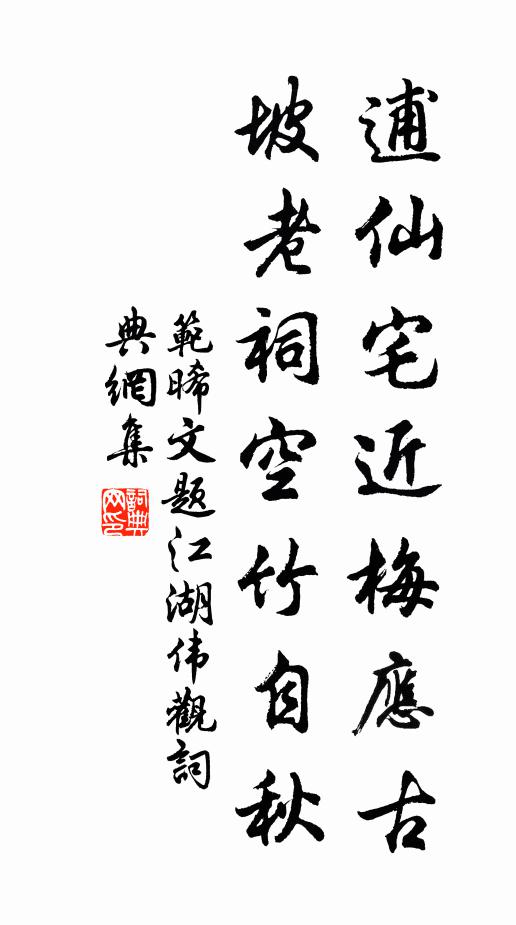 逋仙宅近梅應古
坡老祠空竹自秋
範晞文题江湖伟觀詞
典網集
詞典网印